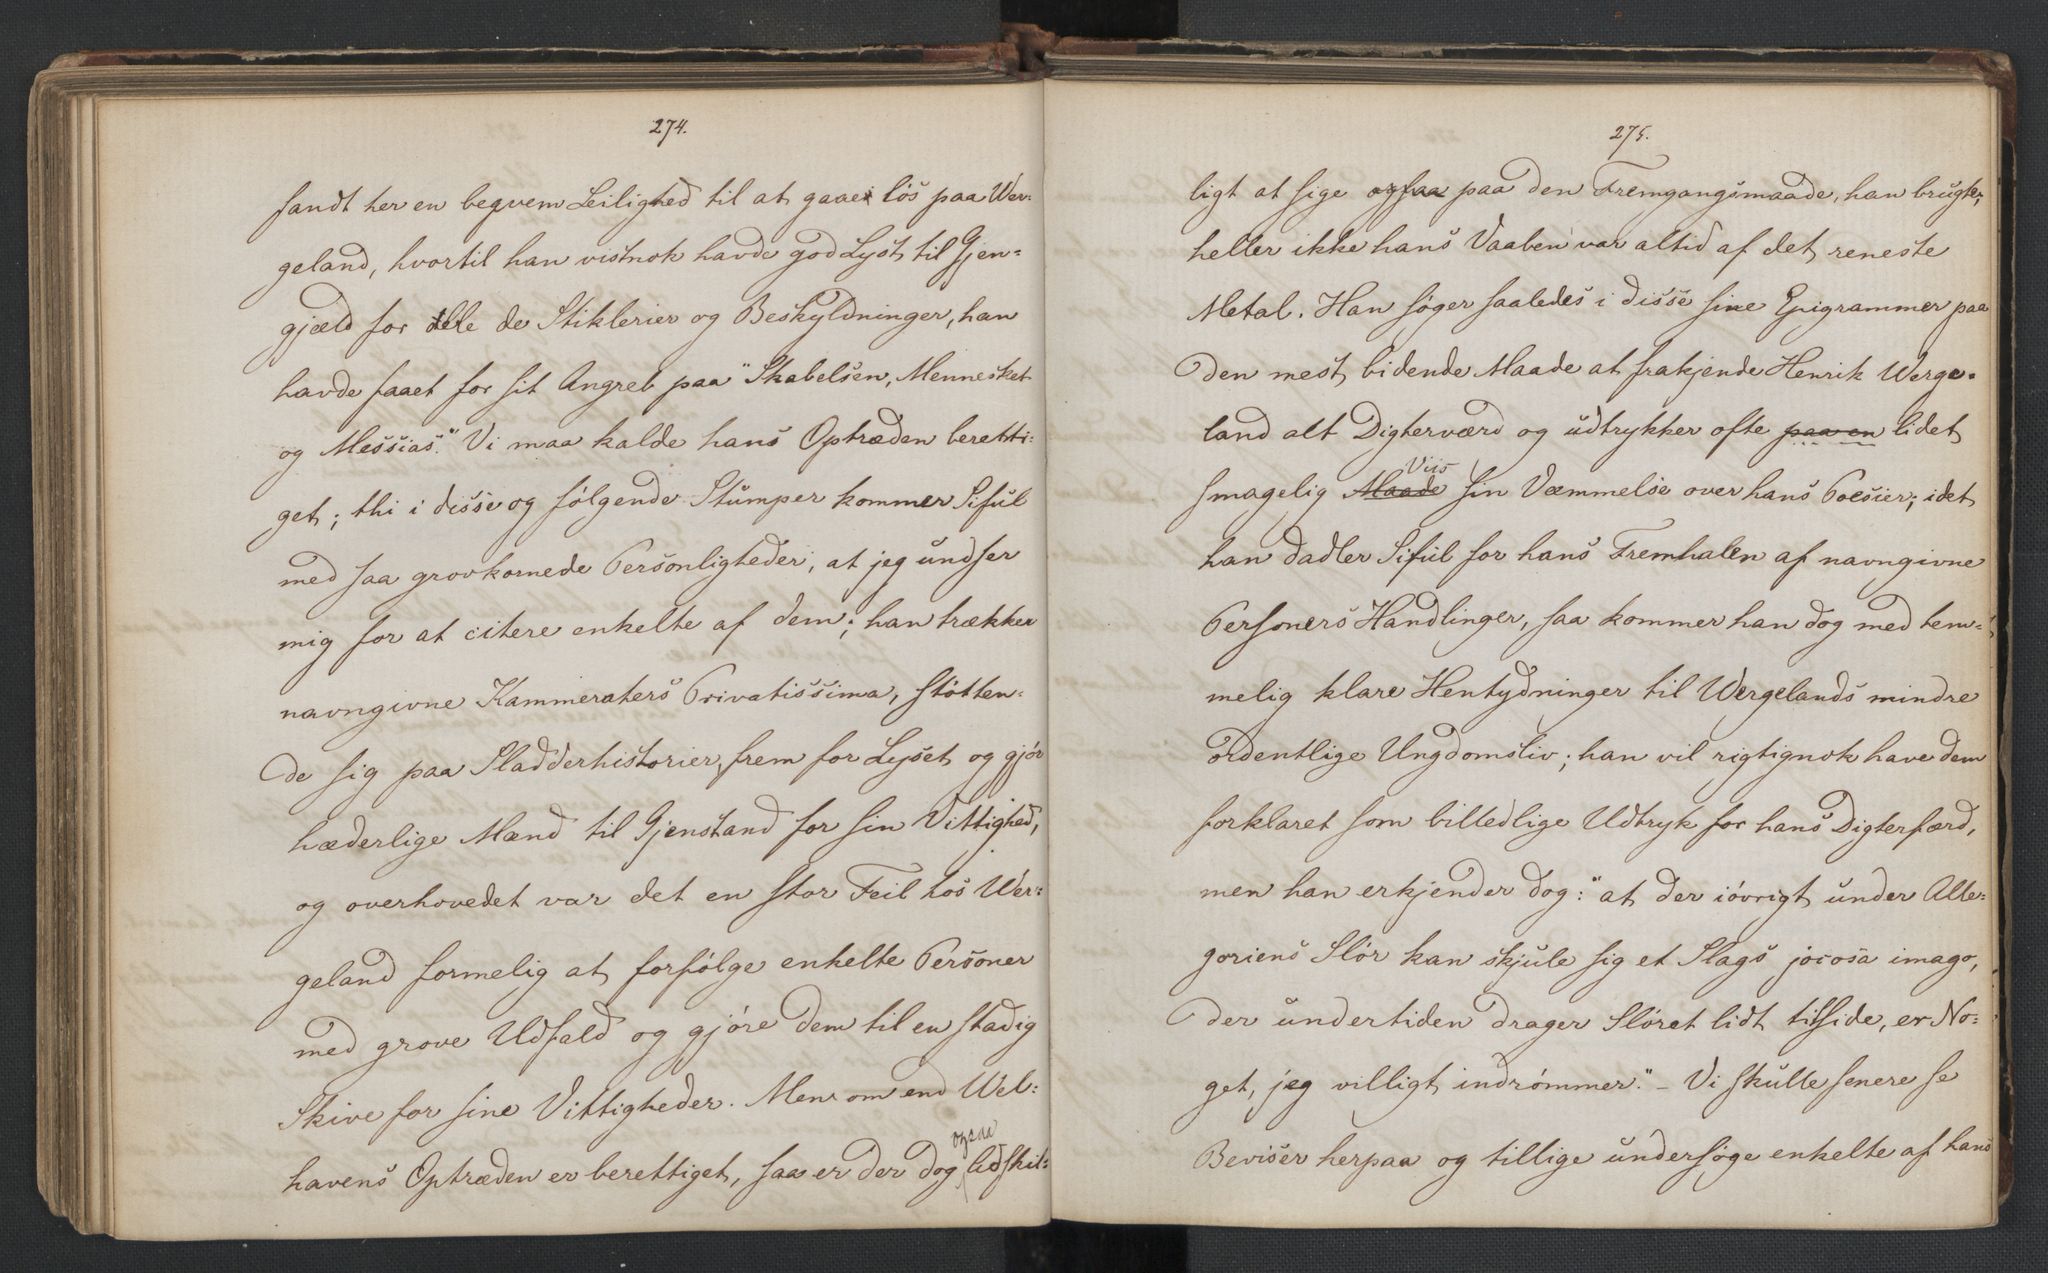 274.
fandt her en beqvem Leilighed til at gaae løs paa Wer-
geland, hvortil han vistnok havde god Lyst til Gjen-
gjæld for alle de Stiklerier og Beskyldninger, han
havde faaet for sit Angreb paa "Skabelsen, Mennesket
og Messias." Vi maa kalde hans Optræden beretti-
get; thi i disse og følgende Stumper kommer Siful
med saa grovkornede Personligheder, at jeg undser
mig for at citere enkelte af dem; han trækker
navngivne Kammeraters Privatissima, støtten-
de sig paa Sladderhistorier, frem for Lyset og gjør
hæderlige Mænd til Gjenstand for sin Vittighed,
og overhovedet var det en stor Feil hos Wer-
geland formelig at forfølge enkelte Personer
med grove Udfald og gjøre dem til en stadig
Skive for sine Vittigheder. Men om end Wel-
havens Optræden er berettiget, saa er der dog ogsaa Adskil-
275.
ligt at sige ogsaa paa den Fremgangsmaade, han brugte;
heller ikke hans Vaaben var altid af det reneste
Metal. Han søger saaledes i disse sine Epigrammer paa
den mest bidende Maade at frakjende Henrik Werge-
land alt Digterværd og udtrykker ofte paa en lidet
smagelig Maade Viis sin Væmmelse over hans Poesier; idet
han dadler Siful for hans Fremhalen af navngivne
Personers Handlinger, saa kommer han dog med tem-
melig klare Hentydninger til Wergelands mindre
ordentlige Ungdomsliv; han vil rigtignok have dem
forklaret som billedlige Udtryk for hans Digterfærd,
men han erkjender dog: "at der iøvrigt under Alle-
goriens Slør kan skjule sig et Slags jocosa imago,
der undertiden drager Sløret lidt tilside, er No-
get, jeg villigt indrømmer." - Vi skulle senere se
Beviser herpaa og tillige undersøge enkelte af hans